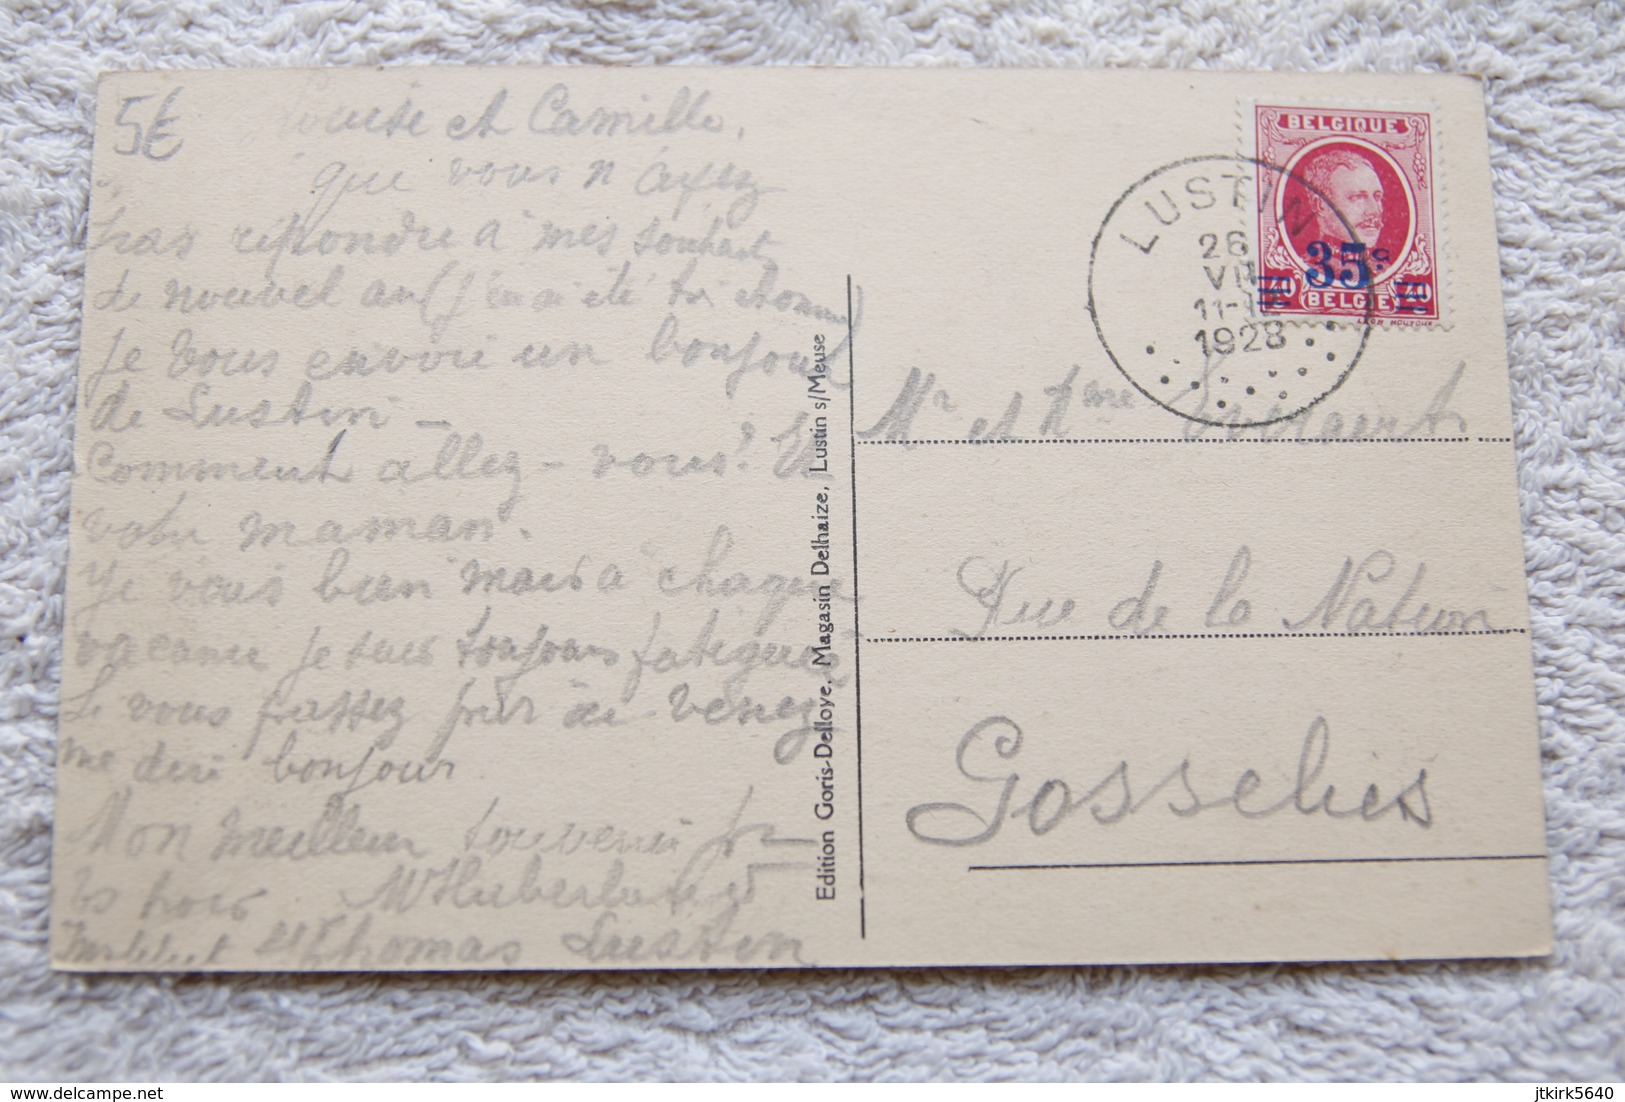 5€
Louise et Camille,
que vous n'ayez
pas répondre à mes souhaits
de nouvel an (j'en ai été très étonné)
Je vous envoie un bonjour
de Lustin -
Comment allez-vous? Et
votre maman.
Je vais bien mais à chaque
vacance je suis toujours fatiguée
Si vous passez par ici venez
me dire bonjour
Mon meilleur souvenir pr
vs trois
Institut St Thomas Lustin
Edition Goris-Delloye, Magasin Delhaize, Lustin s/Meuse
BELGIQUE
35c
40 BELGIE 40
LUSTIN
26
VII
11-12
1928
Mr et Mme
Rue de la Nation
Gosselies
delcampe.net
jtkirk5640